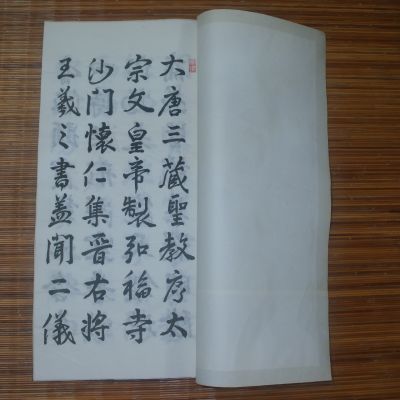 大唐三藏聖教序太
宗文皇帝製弘福寺
沙門懷仁集晉右將
王羲之書蓋聞二儀